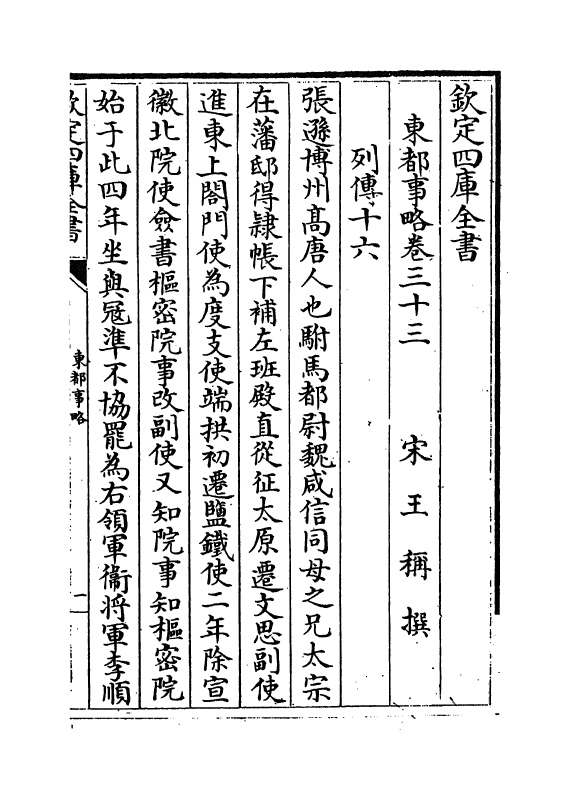 欽定四庫全書
東都事略卷三十三　宋　王　稱　撰
列傳十六
張遜博州髙唐人也駙馬都尉魏咸信同母之兄太宗
在藩邸得隷帳下補左班殿直從征太原遷文思副使
進東上閤門使為度支使端拱初遷鹽鐵使二年除宣
徽北院使僉書樞密院事改副使又知院事知樞密院
始于此四年坐與冦準不協罷為右領軍衞将軍李順
欽定四庫全書
東都事略
一